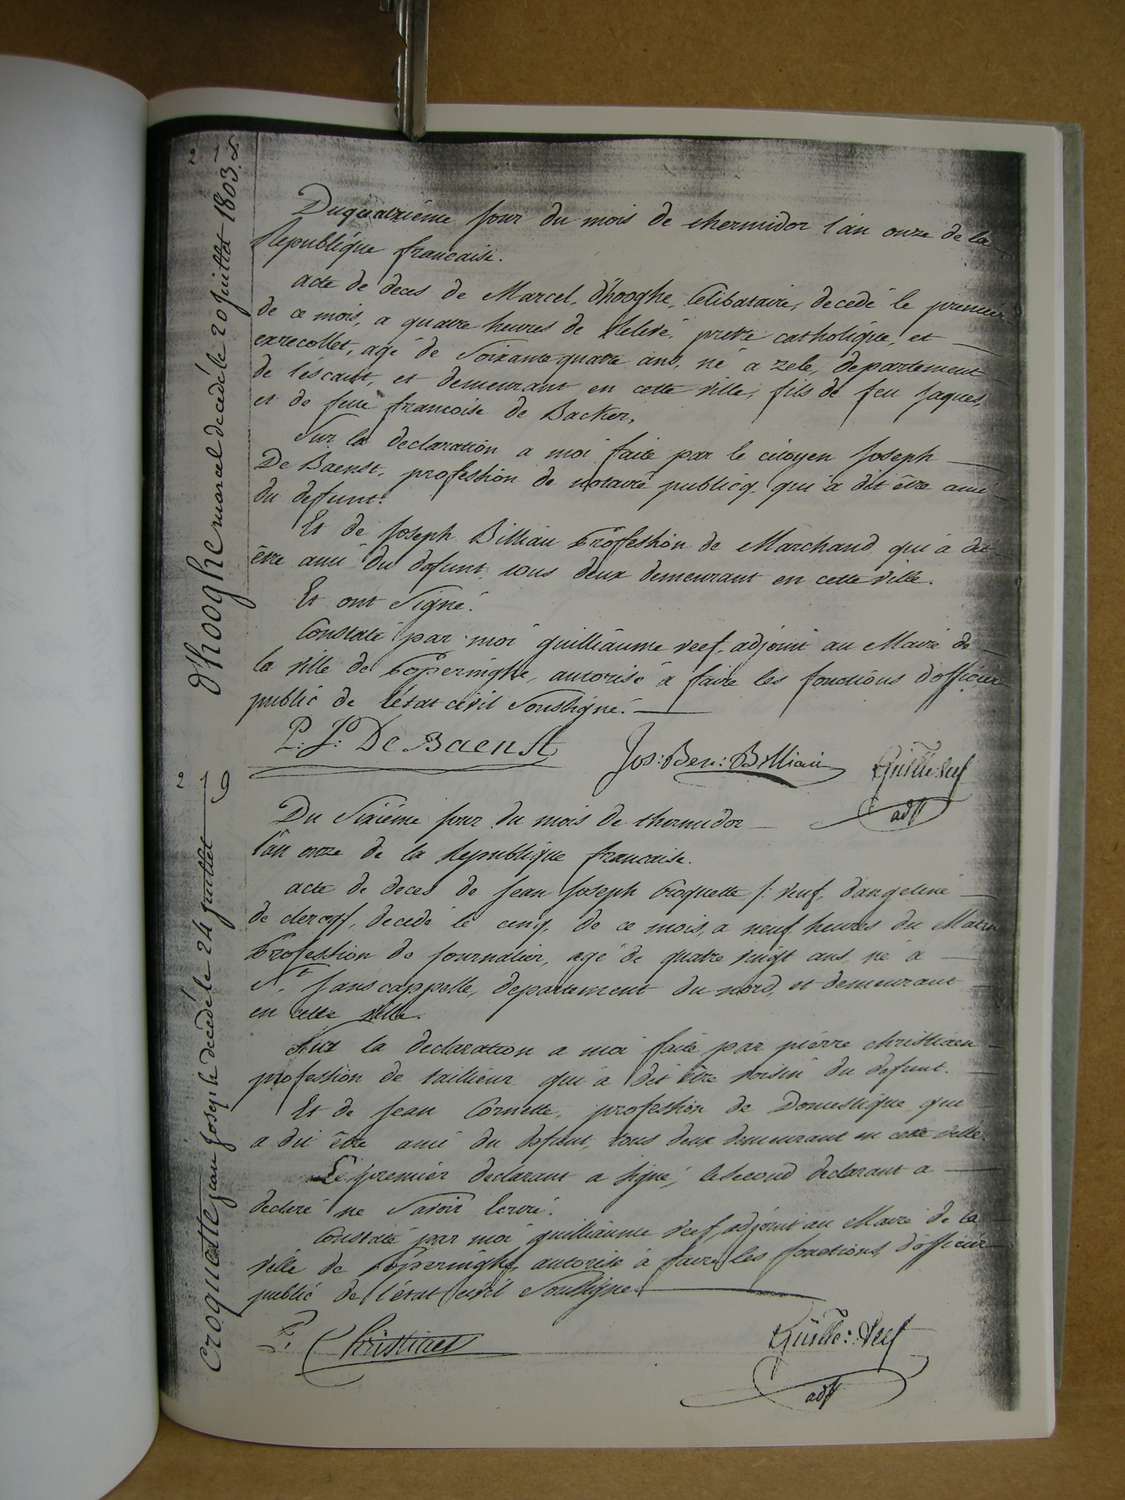 2 1 8.
d'hooghe marcal decédé le 20 juillet 1803
Du quatriéme jour du mois de thermidor l'an onze de la
Republique francaise.
acte de deces de Marcel, d'hooghe, Celibataire, decedé le premier
de ce mois, a quatre heures de relevé, pretre catholique, et
exrecollet, agé de Soixante quatre ans, né a zele, departement
de l'escaut, et demeurant en cette ville, fils de feu Jaques,
et de feue francoise de Backer,
Sur la declaration a moi faite par le citoyen Joseph
De Baenst, profession de notaire publicq, qui a dit être ami
du defunt.
Et de Joseph Billiau profession de Marchand qui à dit
être ami du defunt, tous deux demeurant en cette ville.
Et ont Signé.
Constaté par moi guilliaume veef, adjoint au Maire de
la ville de Poperinghe, autorisé à faire les fonctions d'officier
public de l'état civil Soussigné.
P. J: De Baenst Jos: Ben: Billiau Guille Veef
adjt
2 1 9
Croquette jean joseph decédé le 24 juillet
Du Sixiéme jour du mois de thermidor
l'an onze de la Republique francaise.
acte de deces de Jean Joseph Croquette /: veuf, d'angeline
de clercq /, decedé le cinq, de ce mois, a neuf heures du Matin
Profession de Journalier, agé de quatre vingt ans, né à
St. Janscappelle, departement du nord, et demeurant
en cette ville.
Sur la declaration a moi faite par pierre christiaen
profession de taillieur qui a dit être voisin du defunt.
Et de Jean Cornette, profession de Domestique, qui
a dit être ami du defunt, tous deux demeurant en cette ville
Le premier declarant a signé, le second declarant a
declaré ne Savoir Ecrire.
Constaté par moi guilliaume veef adjoint au Maire de la
ville de Poperinghe autorisé à faire les fonctions d'officier
public de l'état civil Soussigné
P. Christiaen Guille: Veef
adjt